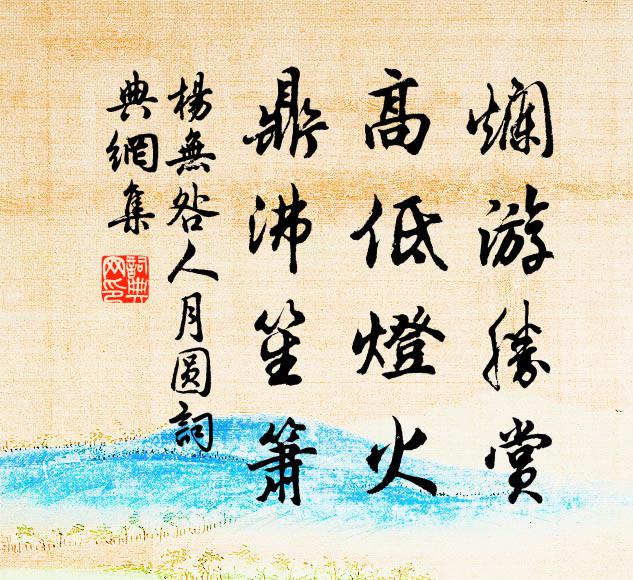 爛游勝賞
高低燈火
鼎沸笙簫
楊無咎人月圓詞
典網集
詞典網印